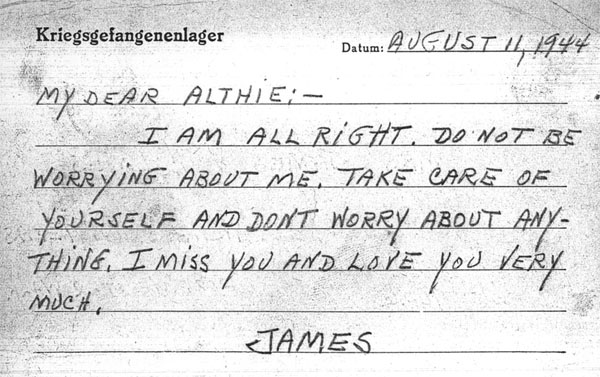 Kriegsgefangenenlager
Datum: AUGUST 11, 1944
MY DEAR ALTHIE:—
I AM ALL RIGHT. DO NOT BE
WORRYING ABOUT ME. TAKE CARE OF
YOURSELF AND DONT WORRY ABOUT ANY-
THING. I MISS YOU AND LOVE YOU VERY
MUCH.
JAMES